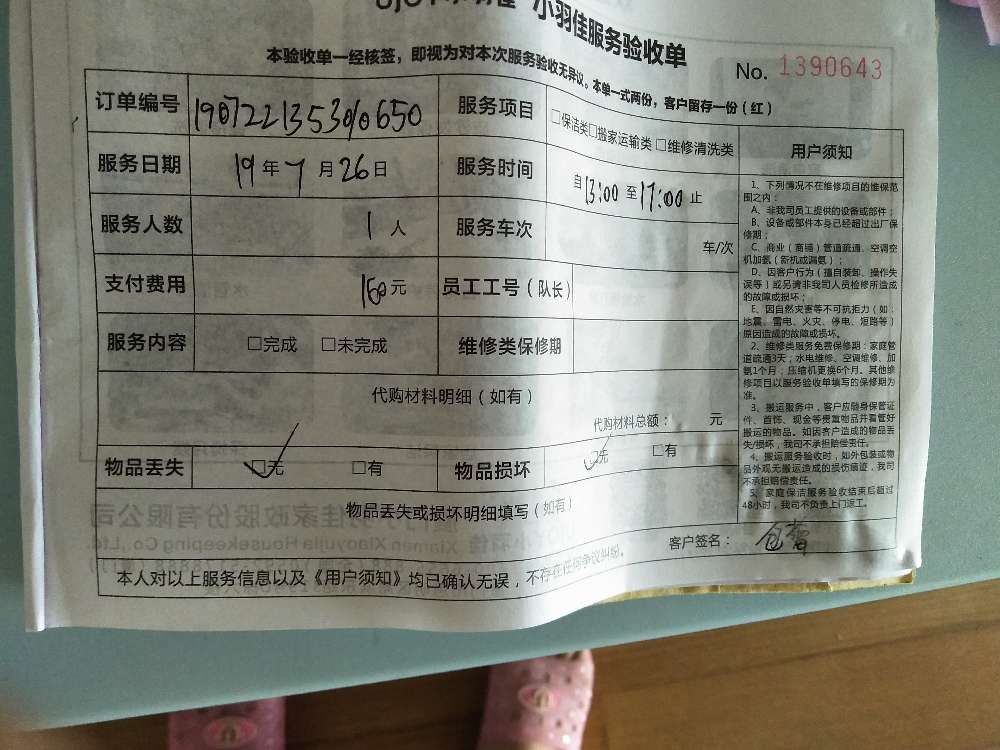 小羽佳服务验收单
本验收单一经核签，即视为对本次服务验收无异议。本单一式两份，客户留存一份（红）
No. 1390643
订单编号
服务项目 □保洁类□搬家运输类 □维修清洗类
服务日期 19 年 7 月 26 日
服务时间 自 13:00 至 17:00 止
服务人数 1 人
服务车次 车/次
支付费用 160 元
员工工号（队长）
服务内容 □完成 □未完成
维修类保修期
代购材料明细（如有）
代购材料总额： 元
物品丢失 □无 □有
物品损坏 □无 □有
物品丢失或损坏明细填写（如有）
客户签名：
本人对以上服务信息以及《用户须知》均已确认无误，不存在任何争议纠纷。
用户须知
1、下列情况不在维修项目的维保范
围之内：
A、非我司员工提供的设备或部件；
B、设备或部件本身已经超过出厂保
修期；
C、商业（商铺）管道疏通、空调空
机加氨（新机或漏氨）；
D、因客户行为（擅自装卸、操作失
误等）或另请非我司人员检修所造成
的故障或损坏；
E、因自然灾害等不可抗拒力（如：
地震、雷电、火灾、停电、短路等）
原因造成的故障或损坏。
2、维修类服务免费保修期：家庭管
道疏通3天；水电维修、空调维修、加
氨1个月；压缩机更换6个月。其他维
修项目以服务验收单填写的保修期为
准。
3、搬运服务中，客户应随身保管证
件、首饰、现金等贵重物品并看管好
搬运的物品。如因客户造成的物品丢
失/损坏，我司不承担赔偿责任。
4、搬运服务验收时，如外包装或物
品外观无搬运造成的损伤痕迹，我司
不承担赔偿责任。
5、家庭保洁服务验收结束后超过
48小时，我司不负责上门返工。